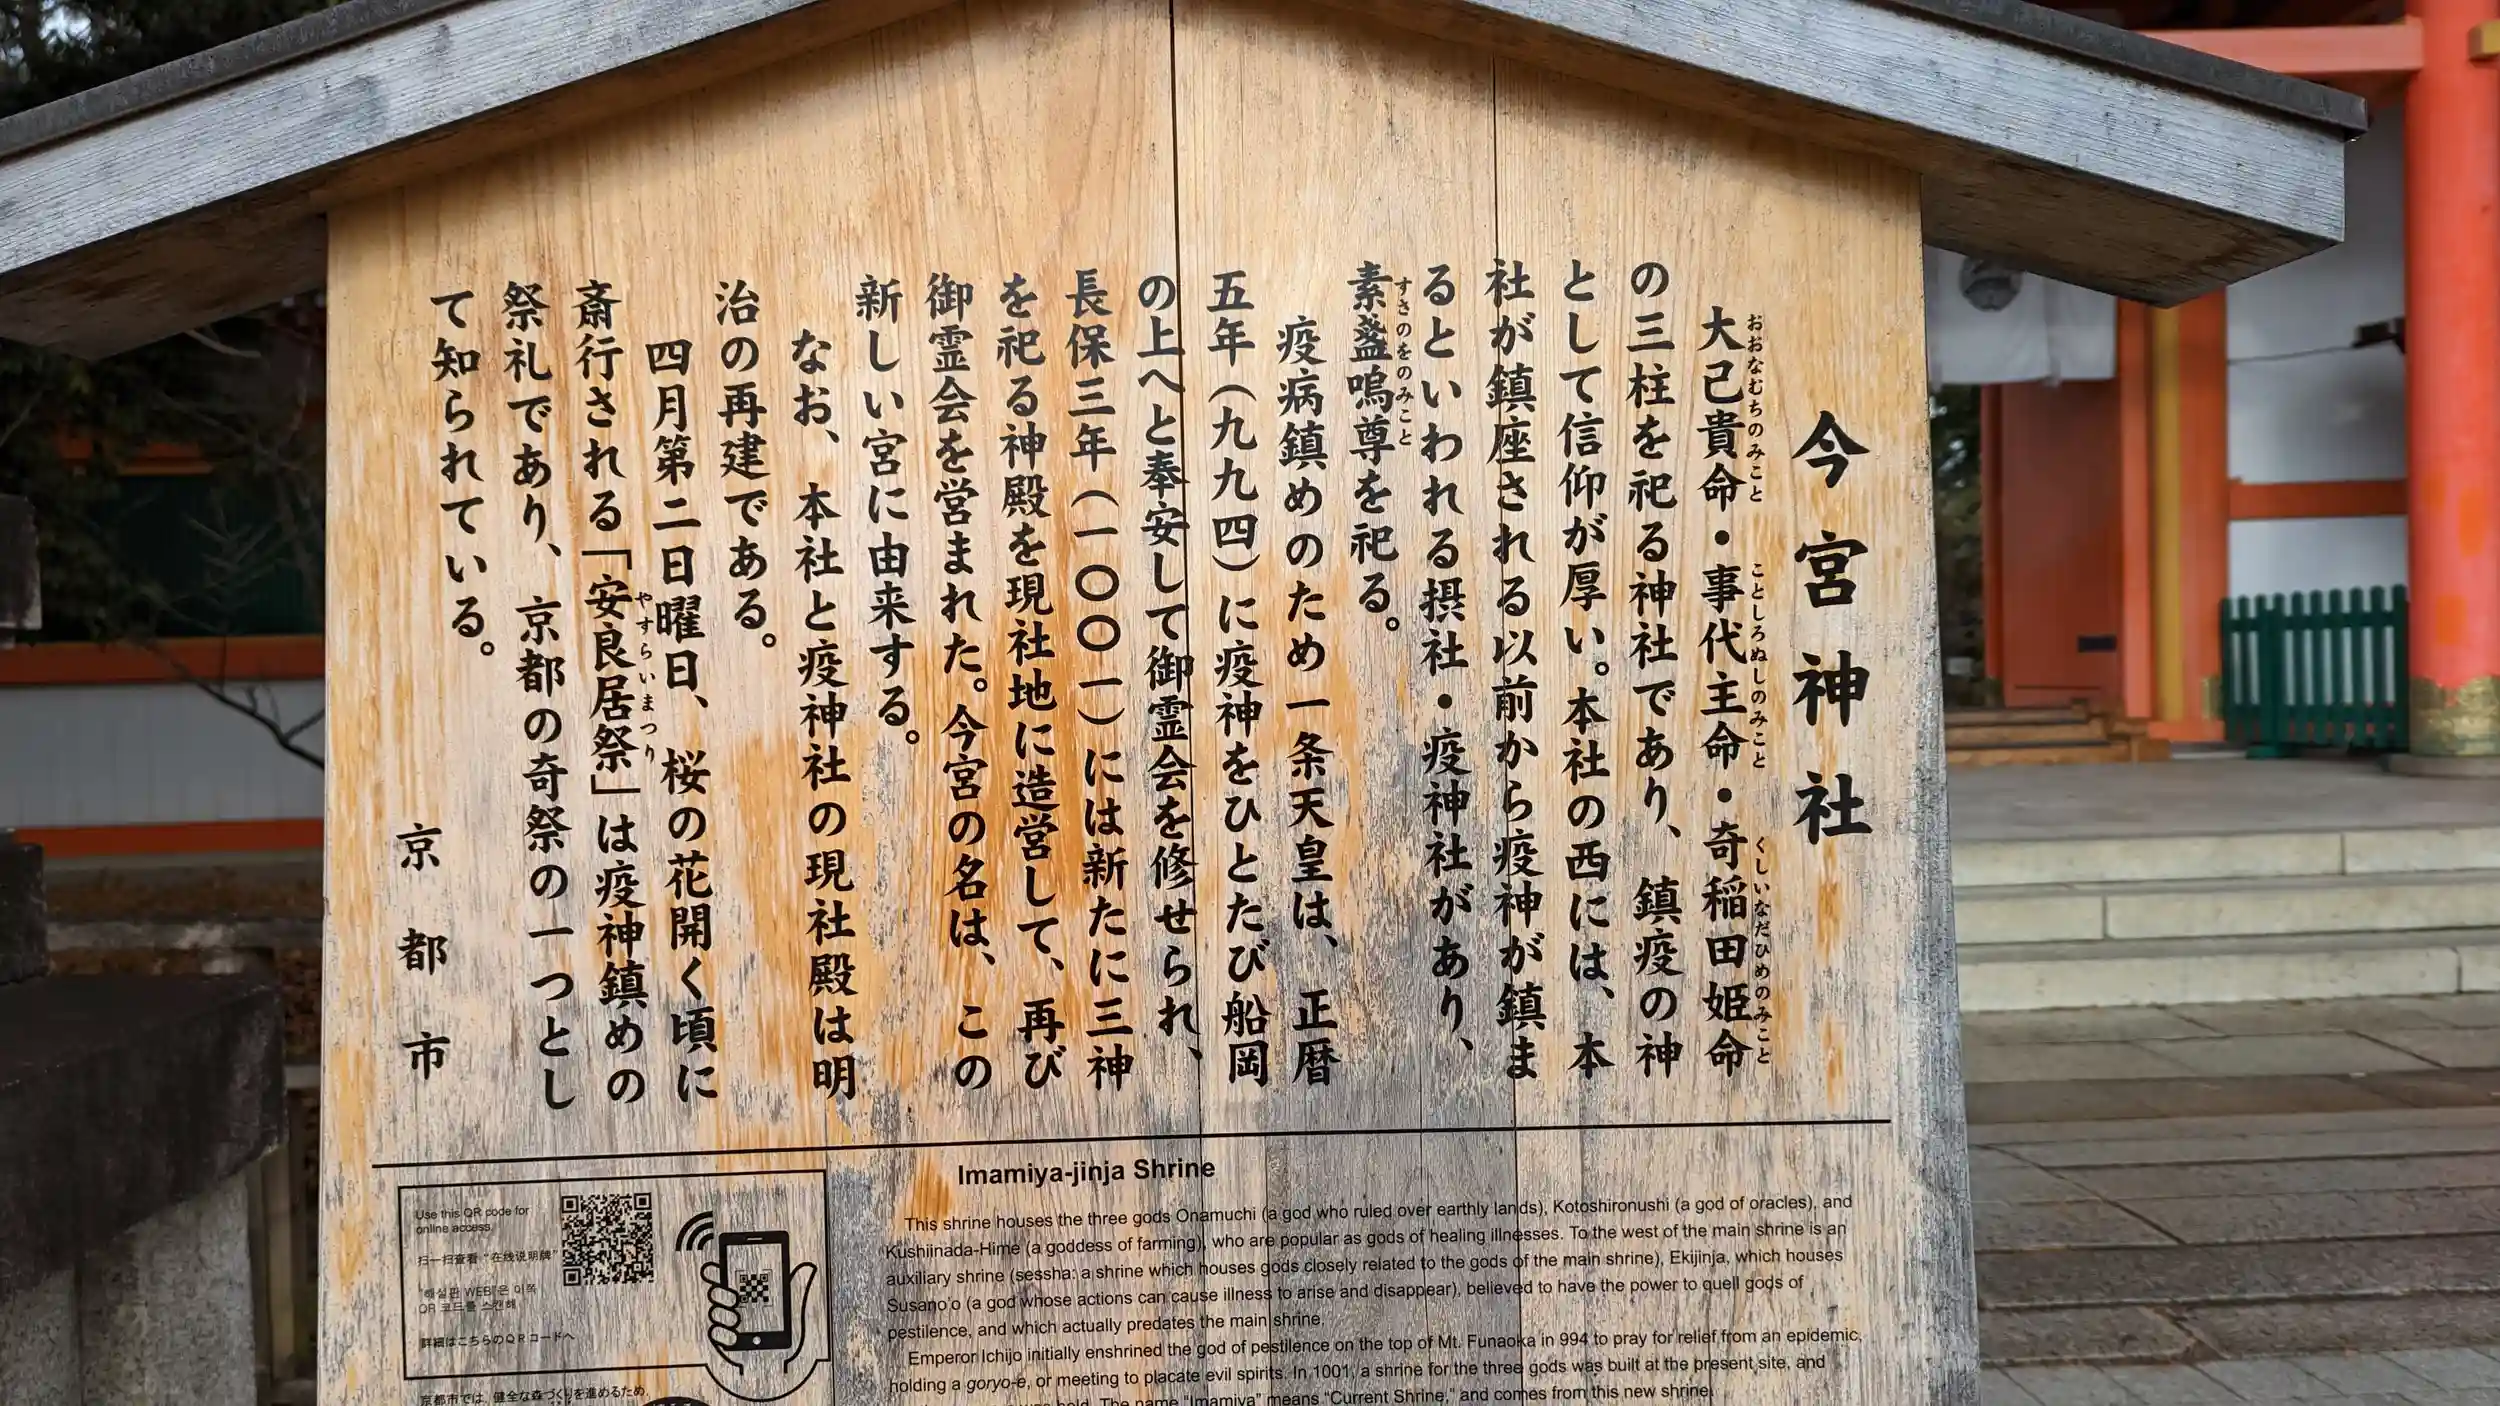 今宮神社
大己貴命・事代主命・奇稲田姫命
おおなむちのみこと ことしろぬしのみこと くしいなだひめのみこと
の三柱を祀る神社であり、鎮疫の神
として信仰が厚い。本社の西には、本
社が鎮座される以前から疫神が鎮ま
るといわれる摂社・疫神社があり、
素盞嗚尊を祀る。
すさのをのみこと
疫病鎮めのため一条天皇は、正暦
五年(九九四)に疫神をひとたび船岡
の上へと奉安して御霊会を修せられ、
長保三年(一〇〇一)には新たに三神
を祀る神殿を現社地に造営して、再び
御霊会を営まれた。今宮の名は、この
新しい宮に由来する。
なお、本社と疫神社の現社殿は明
治の再建である。
四月第二日曜日、桜の花開く頃に
斎行される「安良居祭」は疫神鎮めの
やすらいまつり
祭礼であり、京都の奇祭の一つとし
て知られている。
京都市
Imamiya-jinja Shrine
This shrine houses the three gods Onamuchi (a god who ruled over earthly lands), Kotoshironushi (a god of oracles), and
Kushiinada-Hime (a goddess of farming), who are popular as gods of healing illnesses. To the west of the main shrine is an
auxiliary shrine (sessha: a shrine which houses gods closely related to the gods of the main shrine), Ekijinja, which houses
Susano'o (a god whose actions can cause illness to arise and disappear), believed to have the power to quell gods of
pestilence, and which actually predates the main shrine.
Emperor Ichijo initially enshrined the god of pestilence on the top of Mt. Funaoka in 994 to pray for relief from an epidemic,
holding a goryo-e, or meeting to placate evil spirits. In 1001, a shrine for the three gods was built at the present site, and
held. The name "Imamiya" means "Current Shrine," and comes from this new shrine.
Use this QR code for
online access.
扫一扫查看“在线说明牌”
"해설판 WEB"은 이쪽
QR 코드를 스캔해
詳細はこちらのQRコードへ
京都市では、健全な森づくりを進めるため、